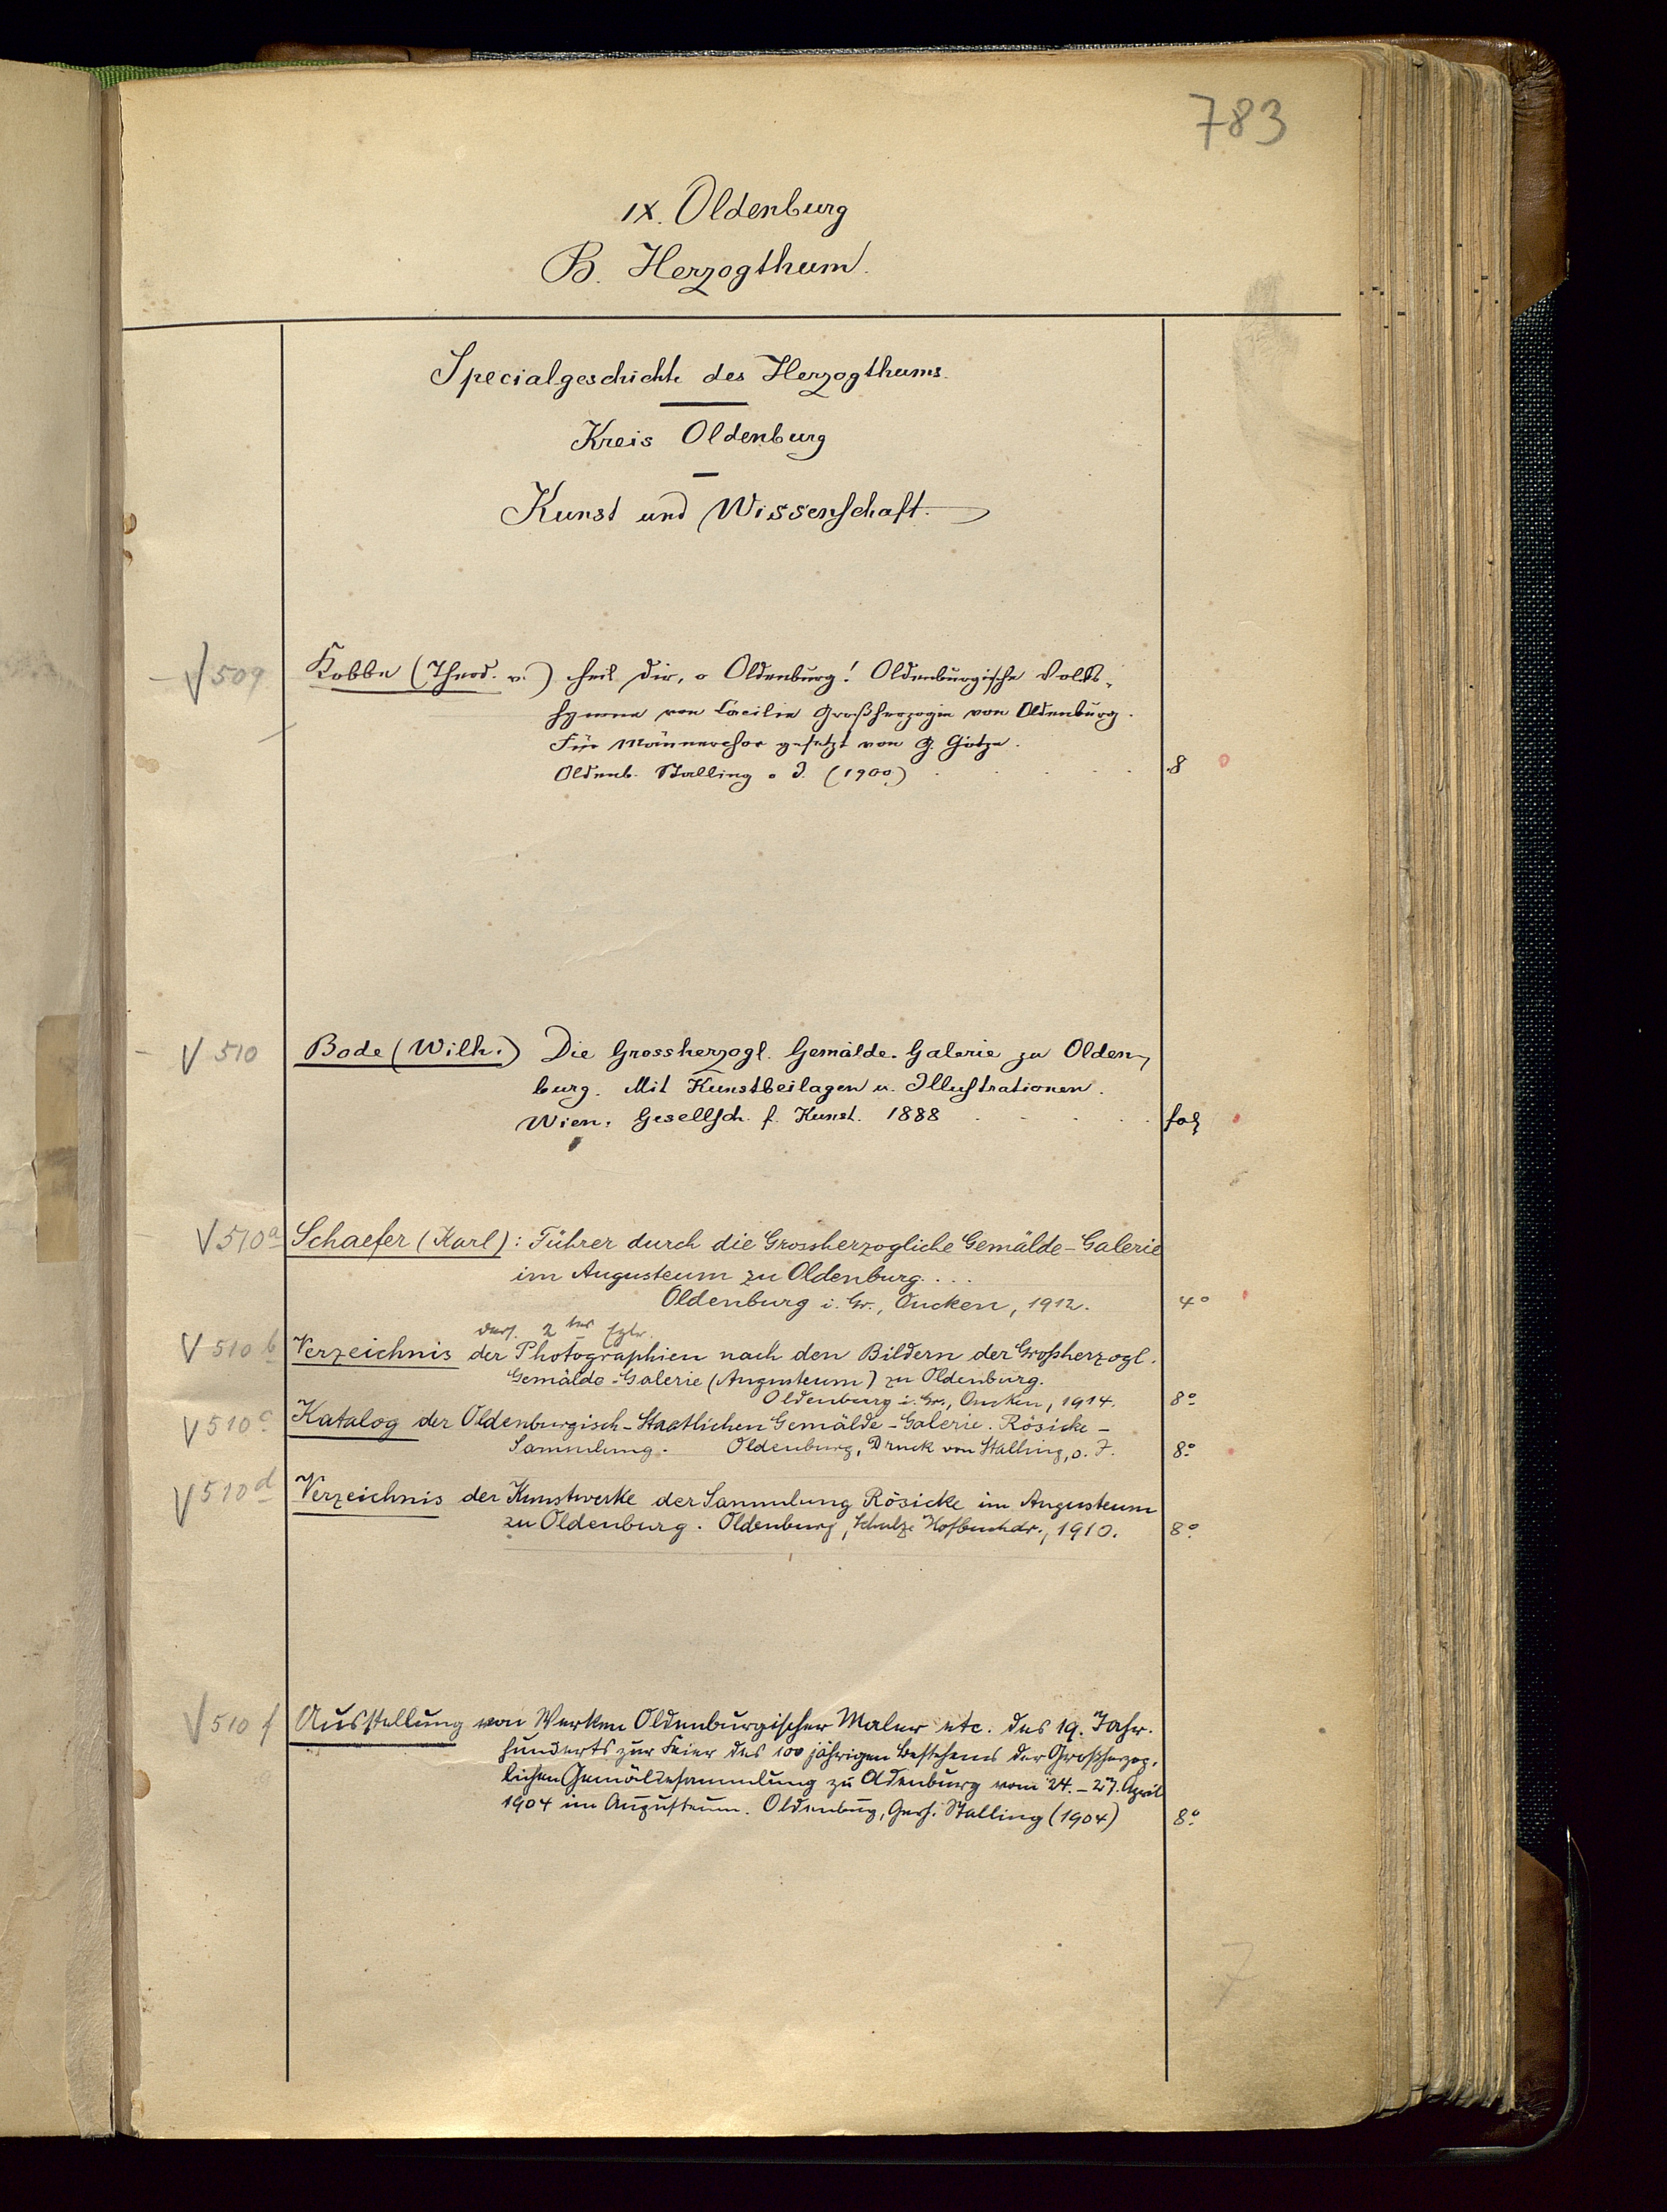 783
IX. Oldenburg
B. Herzogthum.
Specialgeschichte des Herzogthums.
Kreis Oldenburg
Kunst und Wissenschaft.
√ 509 Kobbe (Theod. v.) Heil dir, o Oldenburg! Oldenburgische Volks-
hymne von Cäcilie Großherzogin von Oldenburg.
Für Männerchor gesetzt von G. Götze.
Oldenb. Stalling o J. (1900) 8
√ 510 Bode (Wilh.) Die Grossherzogl. Gemälde-Galerie zu Olden-
burg. Mit Kunstbeilagen u. Illustrationen.
Wien, Gesellsch. f. Kunst. 1888 fol
√ 510a Schaefer (Karl): Führer durch die Grossherzogliche Gemälde-Galerie
im Augusteum zu Oldenburg. . . .
Oldenburg i. Gr., Oncken, 1912. 4°
2tes
√ 510b Verzeichnis der Photographien nach den Bildern der Großherzogl.
Gemälde-Galerie (Augusteum) zu Oldenburg.
Oldenburg i. Gr., Oncken, 1914. 8°
√ 510c Katalog der Oldenburgisch-Staatlichen Gemälde-Galerie. Rösicke-
Sammlung. Oldenburg, Druck von Stalling, o. J. 8°
√ 510d Verzeichnis der Kunstwerke der Sammlung Rösicke im Augusteum
zu Oldenburg. Oldenburg, Schulze Hofbuchdr., 1910. 8°
√ 510f Ausstellung von Werken Oldenburgischer Maler etc. des 19. Jahr-
hunderts zur Feier des 100 jährigen Bestehens der Großherzog-
lichen Gemäldesammlung zu Oldenburg vom 24. - 27. April
1904 im Augusteum. Oldenburg, Gerh. Stalling (1904) 8°
7